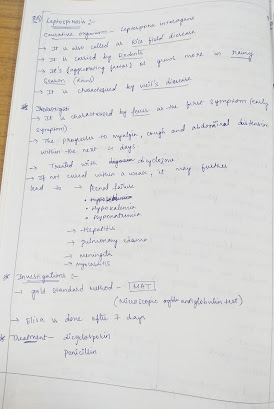 Leptospirosis :-
Causative organism - Leptospira interrogans
→ It is also called as Rice field disease
→ It is carried by Rodents
→ It's (aggravating factor) is more in rainy
season (Rains)
→ It is characterised by weil's disease
* 
→ It is characterized by fever as the first symptom (early
symptom)
→ The progresses to myalgia, cough and abdominal distension
within the next 2 days
→ Treated with doxycycline
→ If not cured within a week, it may further
lead to → Renal failure
• Hypokalemia
• Hyponatremia
→ Hepatitis
→ pulmonary edema
→ meningitis
→ myocarditis
* Investigations :-
→ gold standard method - MAT
(Microscopic agglutination test)
→ Elisa is done after 7 days
* Treatment -
Penicillin